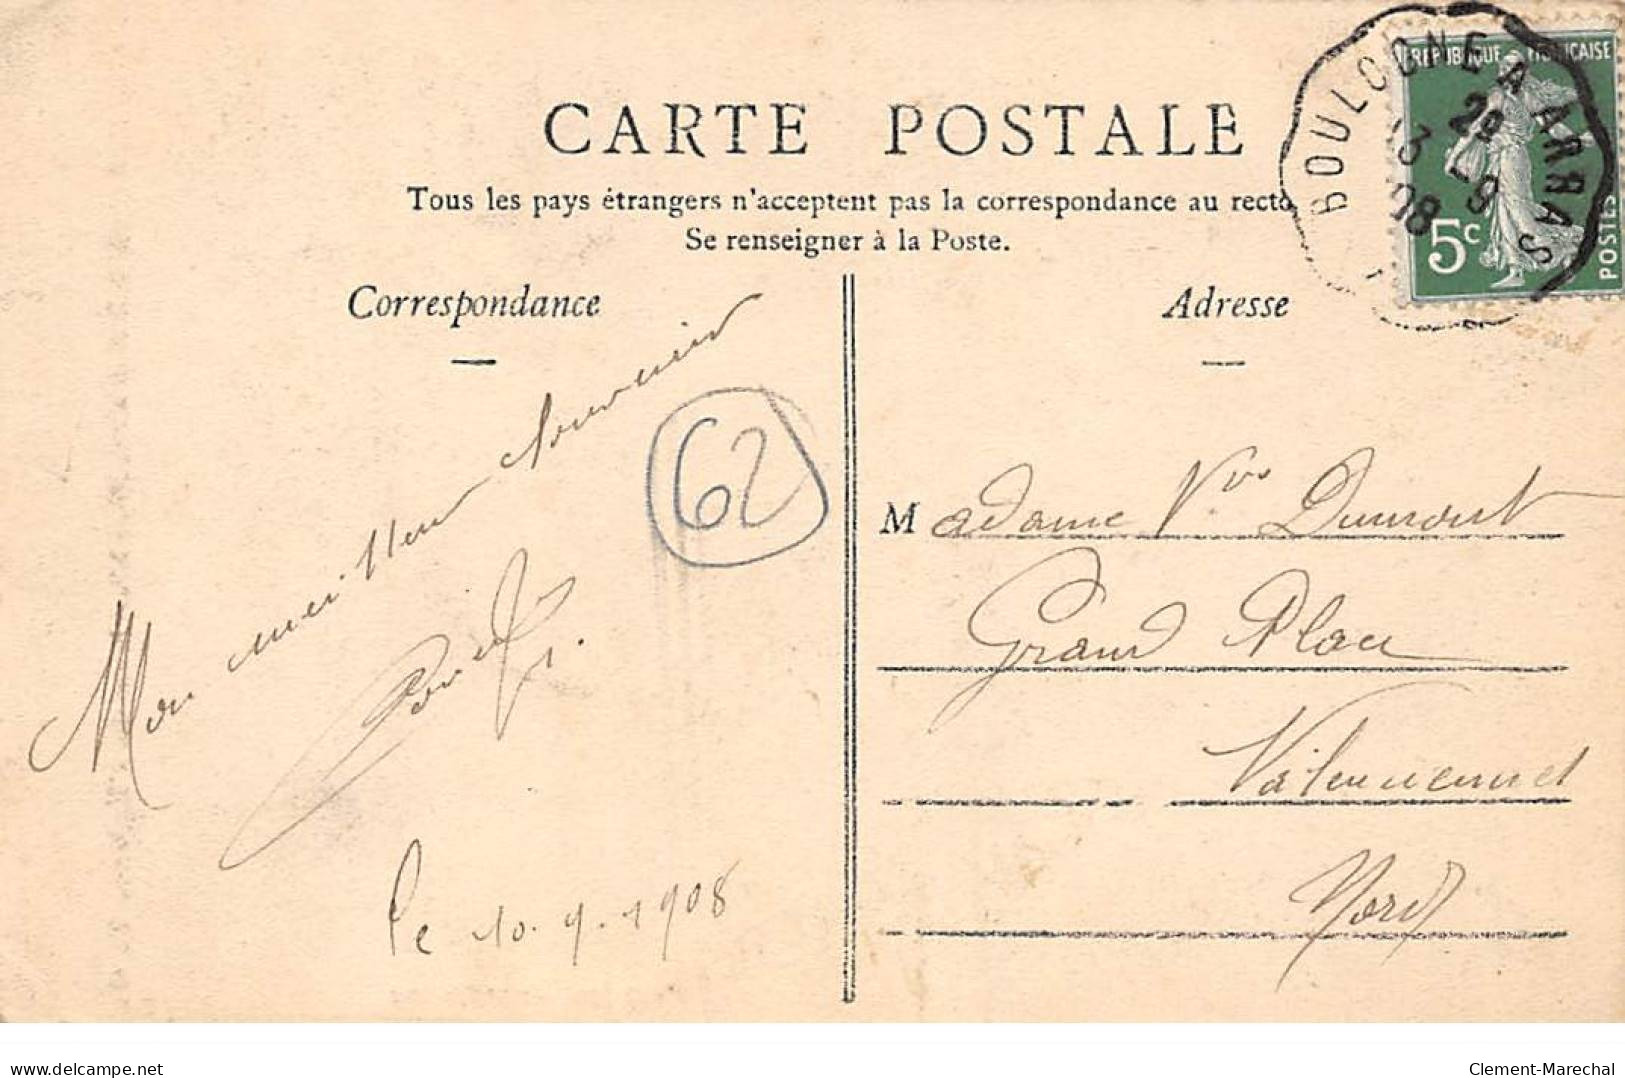 CARTE POSTALE
Tous les pays étrangers n'acceptent pas la correspondance au recto
Se renseigner à la Poste.
Correspondance
Adresse
REPUBLIQUE FRANÇAISE
5c
POSTES
BOULOGNE A ARRAS
2E
13 -9
08
Mon meilleur souvenir
62
Le 10.9.1908
Madame Vve Dumont
Grand Place
Valenciennes
Nord
delcampe.net
Clement-Marechal